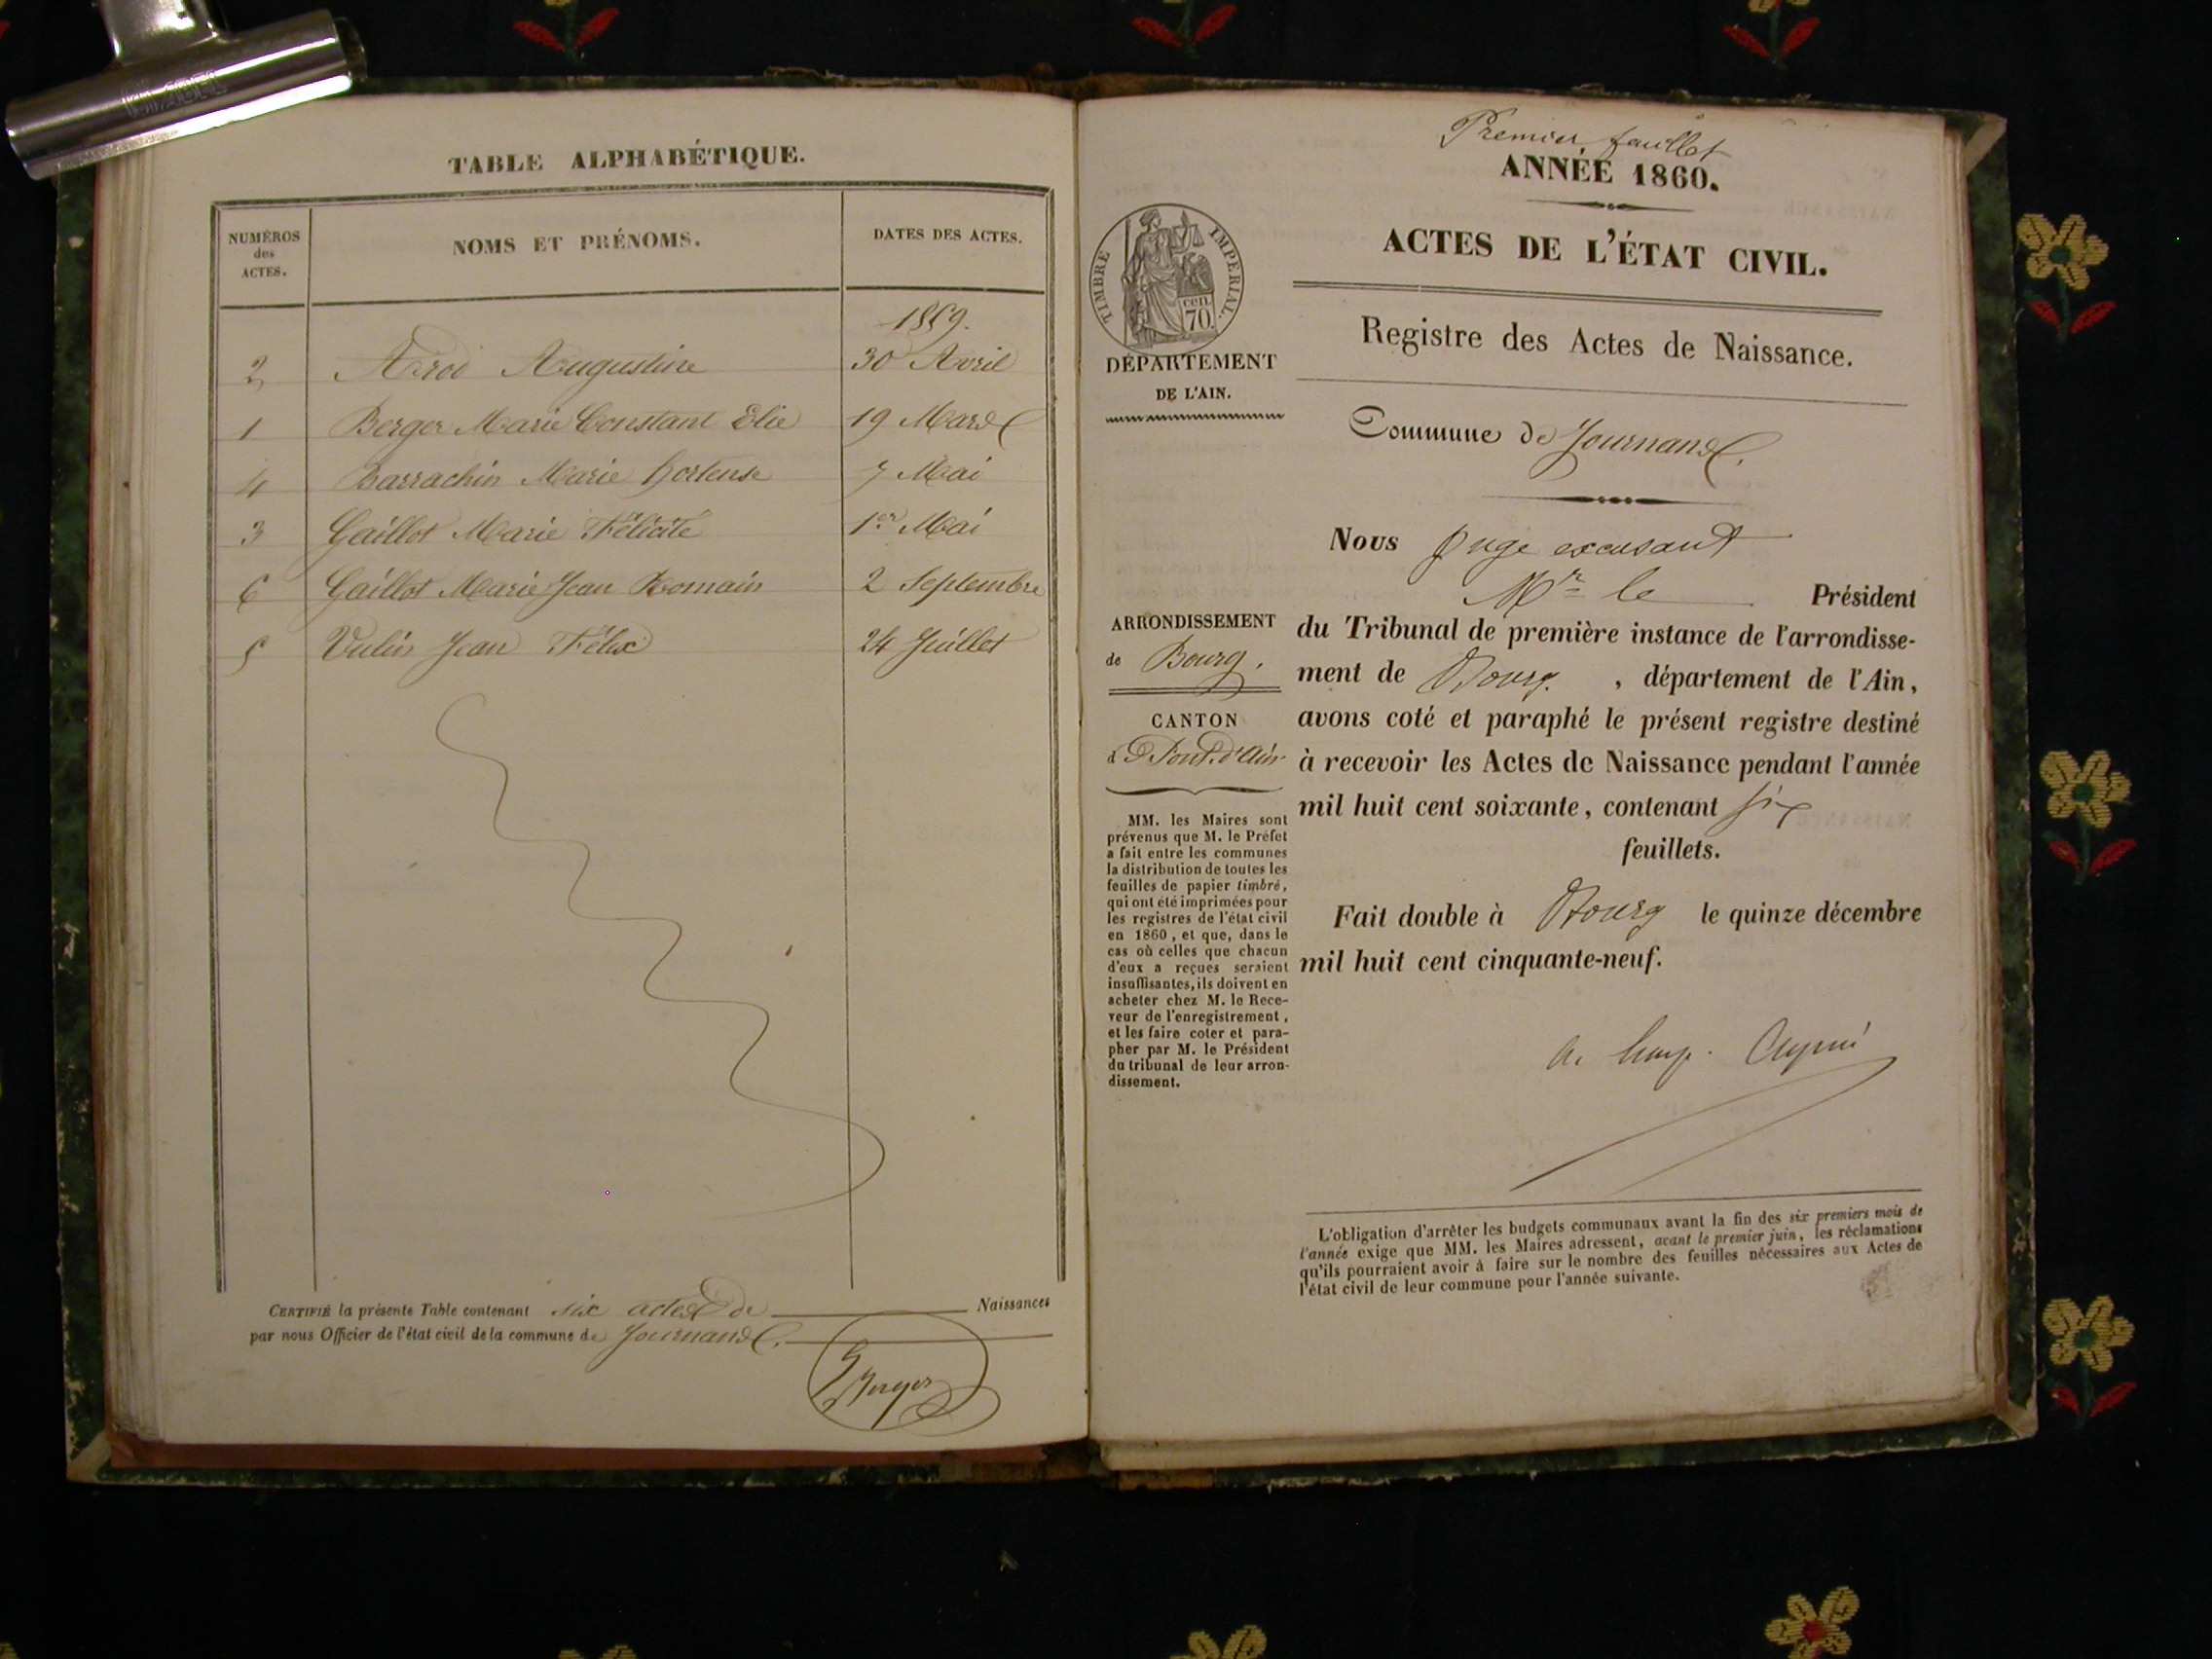 TABLE ALPHABÉTIQUE.
NUMÉROS des ACTES. NOMS ET PRÉNOMS. DATES DES ACTES.
1859.
2 Augustine 30 Avril
1 Berger Marie Constant Elie 19 Mars
4 Barrachin Marie Hortense 7 Mai
3 Gaillot Marie Félicité 1er Mai
6 Gaillot Marie Jean Romain 2 Septembre
5 Vulin Jean Félix 24 Juillet
CERTIFIÉ la présente Table contenant six actes de Naissances
par nous Officier de l'état civil de la commune de Journans.
Berger
Premier feuillet
ANNÉE 1860.
ACTES DE L'ÉTAT CIVIL.
TIMBRE IMPÉRIAL.
cen.
70.
DÉPARTEMENT
DE L'AIN.
ARRONDISSEMENT
de Bourg.
CANTON
d Pont-d'Ain
MM. les Maires sont
prévenus que M. le Préfet
a fait entre les communes
la distribution de toutes les
feuilles de papier timbré,
qui ont été imprimées pour
les registres de l'état civil
en 1860, et que, dans le
cas où celles que chacun
d'eux a reçues seraient
insuffisantes, ils doivent en
acheter chez M. le Rece-
veur de l'enregistrement,
et les faire coter et para-
pher par M. le Président
du tribunal de leur arron-
dissement.
Registre des Actes de Naissance.
Commune de Journans.
Nous Juge excusant
Mr le Président
du Tribunal de première instance de l'arrondisse-
ment de Bourg, département de l'Ain,
avons coté et paraphé le présent registre destiné
à recevoir les Actes de Naissance pendant l'année
mil huit cent soixante, contenant six
feuillets.
Fait double à Bourg le quinze décembre
mil huit cent cinquante-neuf.
L'obligation d'arrêter les budgets communaux avant la fin des six premiers mois de
l'année exige que MM. les Maires adressent, avant le premier juin, les réclamations
qu'ils pourraient avoir à faire sur le nombre des feuilles nécessaires aux Actes de
l'état civil de leur commune pour l'année suivante.